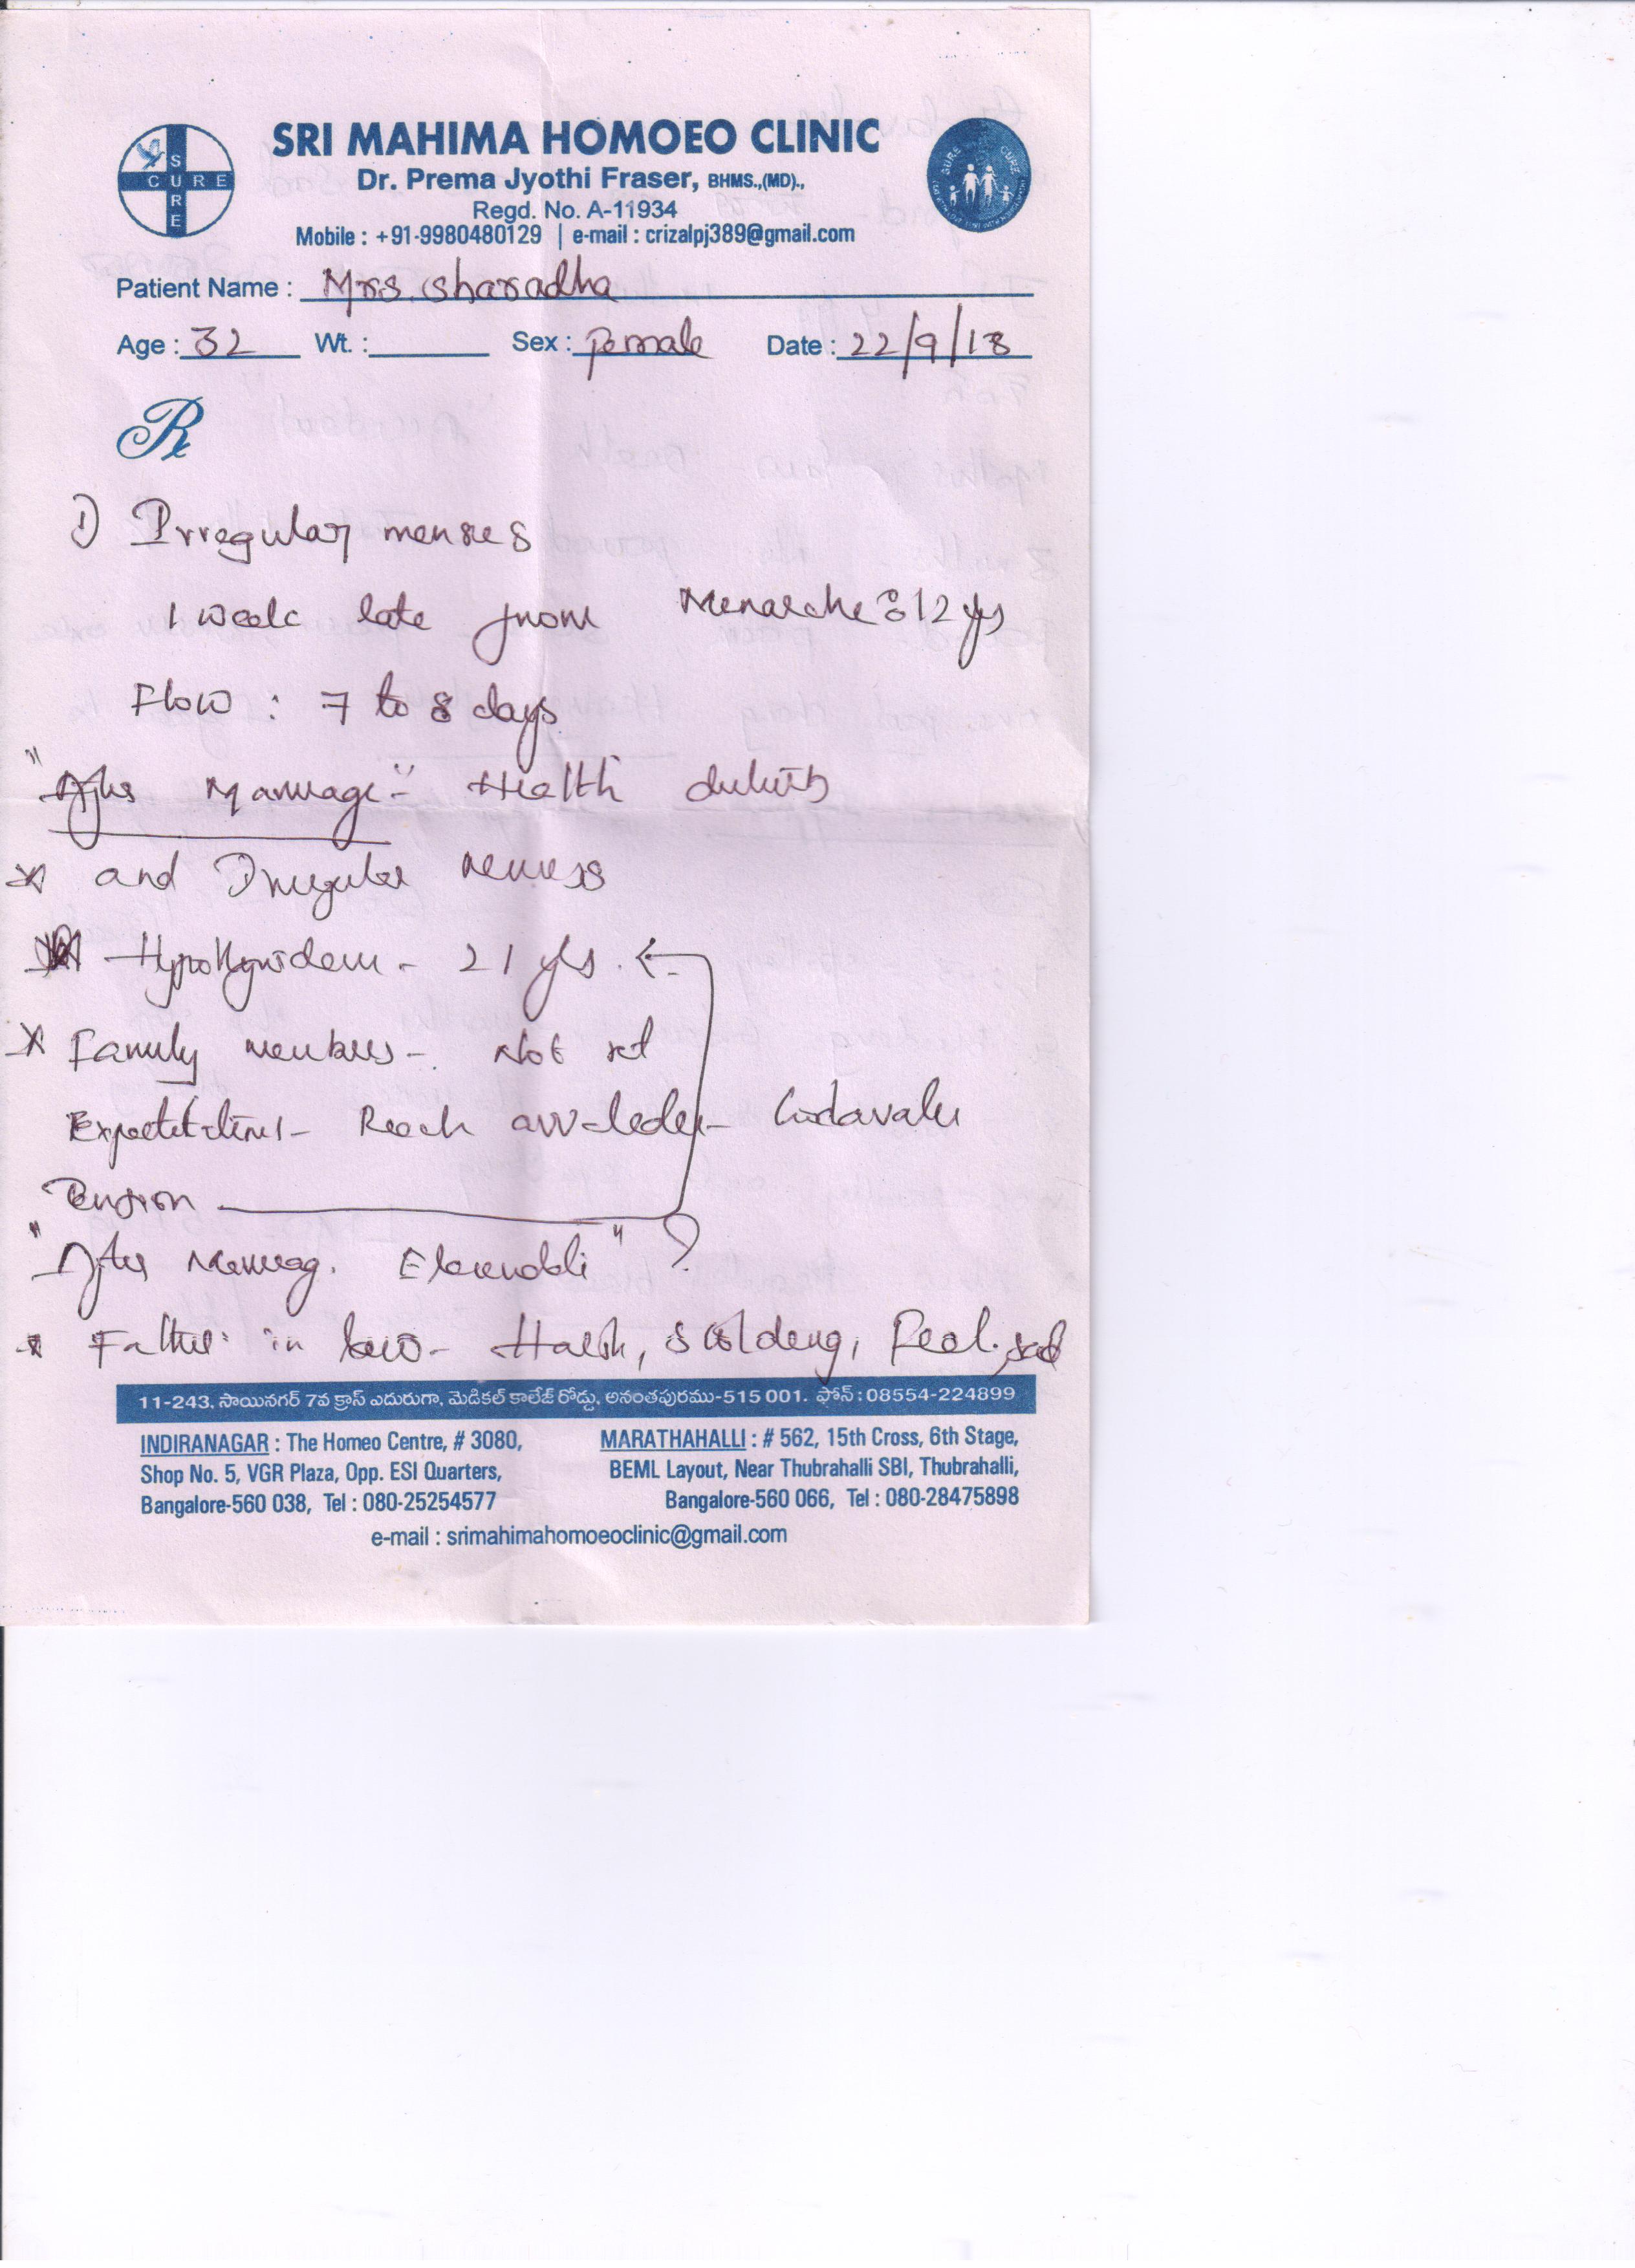 SURE CURE
SRI MAHIMA HOMOEO CLINIC
Dr. Prema Jyothi Fraser, BHMS.,(MD).,
Regd. No. A-11934
Mobile : +91-9980480129 | e-mail : crizalpj389@gmail.com
SURE CURE
Patient Name : Mrs. sharadha
Age : 32 Wt. : Sex : Female Date : 22/9/18
Rx
1) Irregular menses
1 week late from Menarche : 12 yrs
Flow : 7 to 8 days
"After Marriage" - Health
* and Irregular menses
- 21 yrs.
* Family members - Not
- Reach
Tension
"After "
* Father in law - Harsh, scolding, Feel sad
11-243, సాయినగర్ 7వ క్రాస్ ఎదురుగా, మెడికల్ కాలేజ్ రోడ్డు, అనంతపురము-515 001. ఫోన్ : 08554-224899
INDIRANAGAR : The Homeo Centre, # 3080,
Shop No. 5, VGR Plaza, Opp. ESI Quarters,
Bangalore-560 038, Tel : 080-25254577
MARATHAHALLI : # 562, 15th Cross, 6th Stage,
BEML Layout, Near Thubrahalli SBI, Thubrahalli,
Bangalore-560 066, Tel : 080-28475898
e-mail : srimahimahomoeoclinic@gmail.com